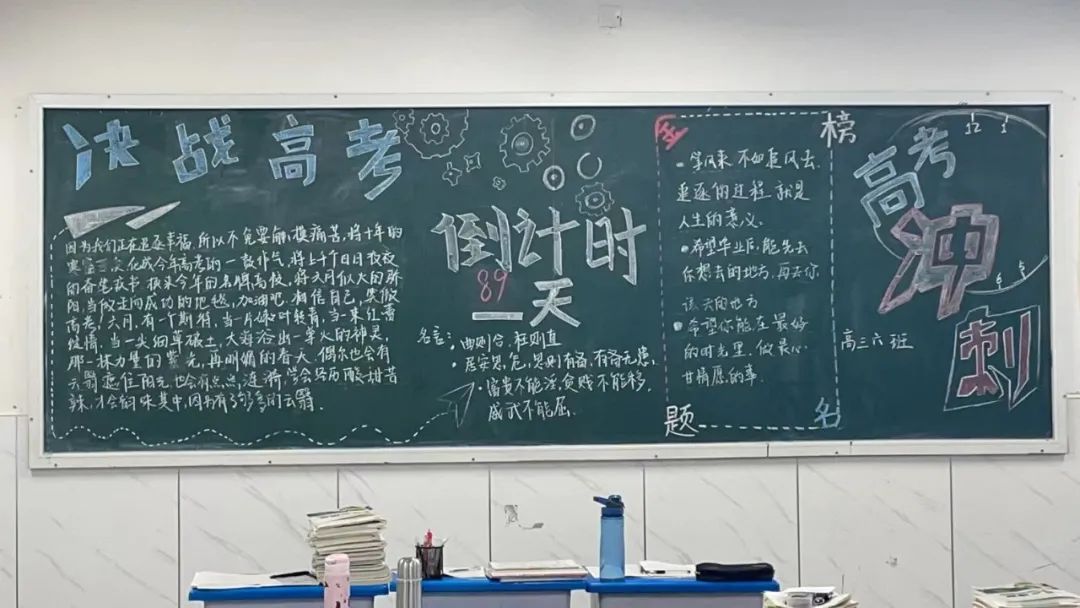 决战高考
因为我们正在追逐幸福,所以不免要触摸痛苦,将十年的
寒窗 化成今年高考的一鼓作气,将上千个日日夜夜
的奋笔疾书 换来今年的名牌高校,将六月似火的骄
阳当做走向成功的地毯,加油吧,相信自己,笑傲
高考,六月,有一个期待,当一片绿叶转青,当一束红霞
当一尖细草破土,大海浴出一掌火的神灵,
那一抹力量的紫光,再刚媚的春天,偶尔也会有
云翳遮住阳光,也会有点点涟漪,学会经历酸甜苦
辣,才会回味其中,因为有了够多的云翳.
倒计时
89
天
名言:曲则全,枉则直
居安思危,思则有备,有备无患.
富贵不能淫,贫贱不能移,
威武不能屈.
金榜
等风来 不如追风去.
追逐的过程 就是
人生的意义.
希望毕业后,能先去
你想去的地方,再去你
该去的地方
希望你能在最好
的时光里,做最心
甘情愿的事.
题名
12 1
高考
冲
刺
6 5
高三六班